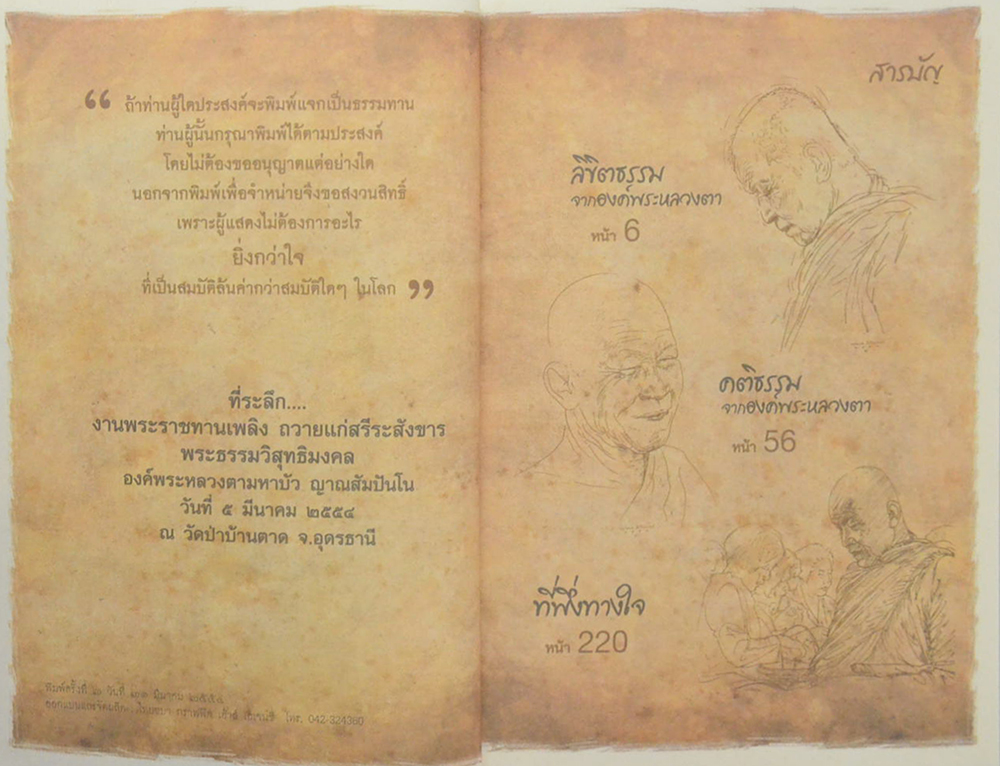 “ ถ้าท่านผู้ใดประสงค์จะพิมพ์แจกเป็นธรรมทาน
ท่านผู้นั้นกรุณาพิมพ์ได้ตามประสงค์
โดยไม่ต้องขออนุญาตแต่อย่างใด
นอกจากพิมพ์เพื่อจำหน่ายจึงขอสงวนสิทธิ์
เพราะผู้แสดงไม่ต้องการอะไร
ยิ่งกว่าใจ
ที่เป็นสมบัติล้นค่ากว่าสมบัติใดๆ ในโลก ”
ที่ระลึก....
งานพระราชทานเพลิง ถวายแก่สรีระสังขาร
พระธรรมวิสุทธิมงคล
องค์พระหลวงตามหาบัว ญาณสัมปันโน
วันที่ ๕ มีนาคม ๒๕๕๔
ณ วัดป่าบ้านตาด จ.อุดรธานี
พิมพ์ครั้งที่ วันที่ มีนาคม ๒๕๕๔
โทร. 042-324360
สารบัญ
ลิขิตธรรม
จากองค์พระหลวงตา
หน้า 6
คติธรรม
จากองค์พระหลวงตา
หน้า 56
ที่พึ่งทางใจ
หน้า 220